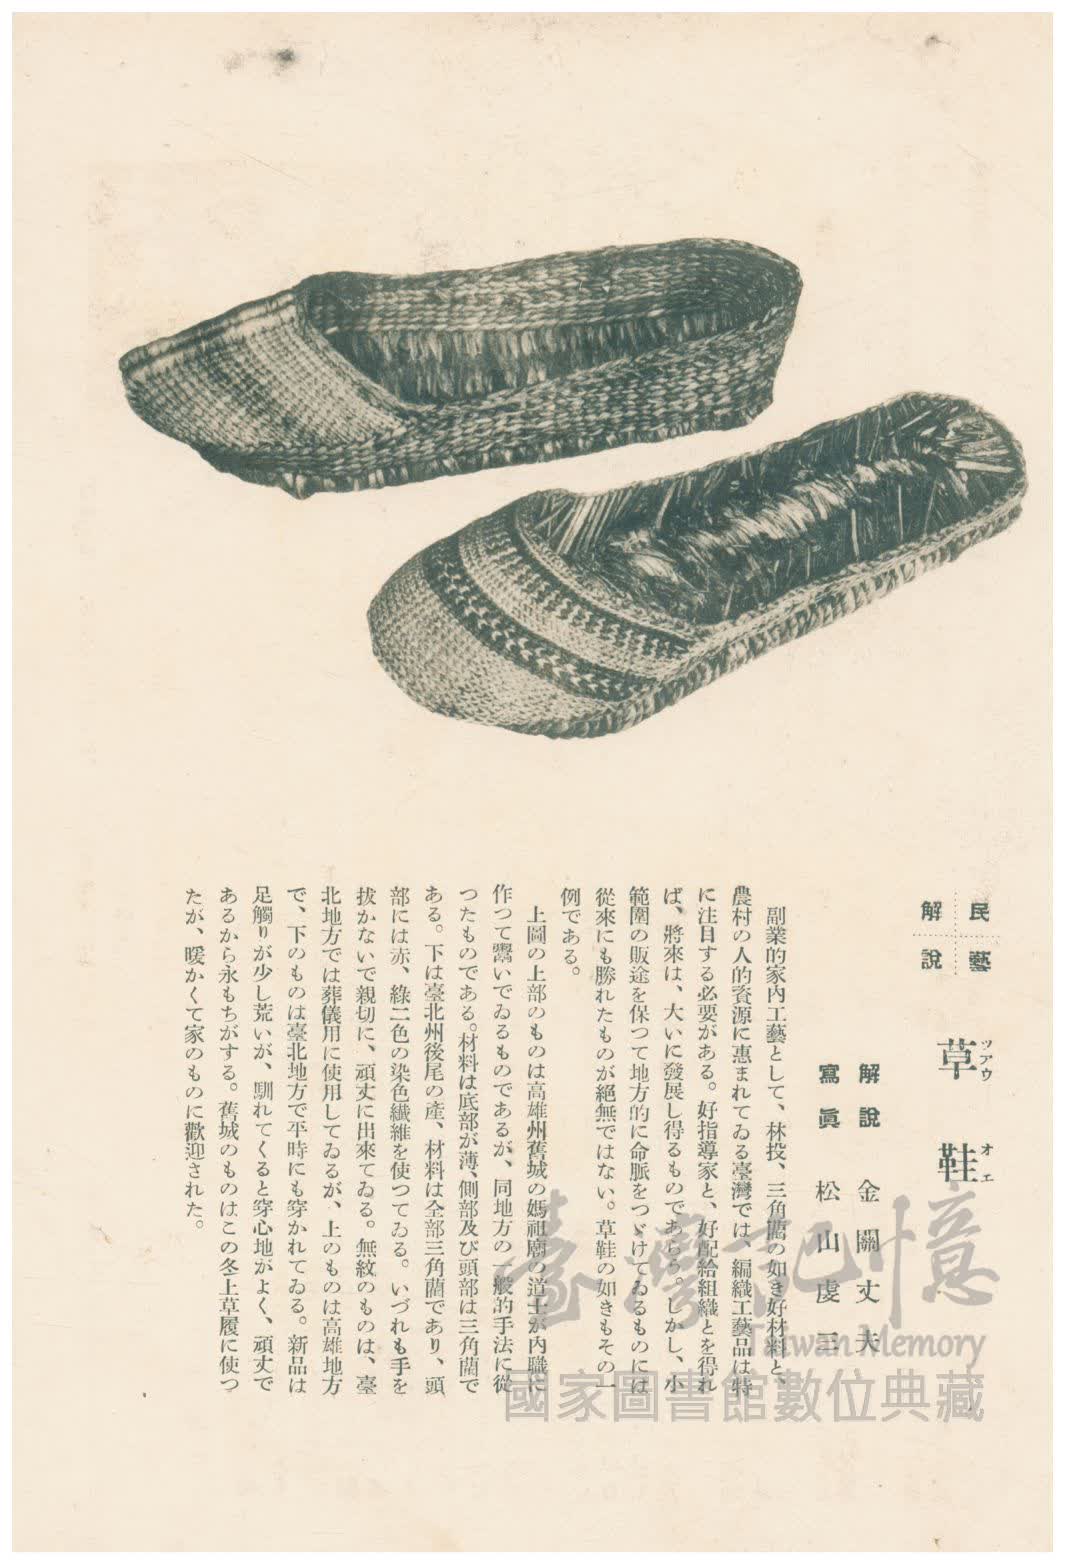 民藝
解說
草鞋
ツアウ オエ
解說 金關丈夫
寫眞 松山虔三
副業的家內工藝として、林投、三角藺の如き好材料と、
農村の人的資源に惠まれてゐる臺灣では、編織工藝品は特
に注目する必要がある。好指導家と、好配給組織とを得れ
ば、將來は、大いに發展し得るものであらう。しかし、小
範圍の販途を保つて地方的に命脈をつゞけてゐるものには
從來にも勝れたものが絕無ではない。草鞋の如きもその一
例である。
上圖の上部のものは高雄州舊城の媽祖廟の道士が內職に
作つて鬻いでゐるものであるが、同地方の一般的手法に從
つたものである。材料は底部が薄、側部及び頭部は三角藺で
ある。下は臺北州後尾の產、材料は全部三角藺であり、頭
部には赤、綠二色の染色纎維を使つてゐる。いづれも手を
拔かないで親切に、頑丈に出來てゐる。無紋のものは、臺
北地方では葬儀用に使用してゐるが、上のものは高雄地方
で、下のものは臺北地方で平時にも穿かれてゐる。新品は
足觸りが少し荒いが、馴れてくると穿心地がよく、頑丈で
あるから永もちがする。舊城のものはこの冬上草履に使つ
たが、暖かくて家のものに歡迎された。
臺灣記憶
Taiwan Memory
國家圖書館數位典藏